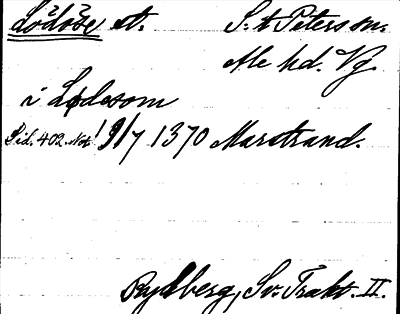 Lödöse st. S:t Peters sn.
Ale hd. Vg.
i Lødesom
Sid. 402. Not 1 9/7 1370 Marstrand.
Rydberg, Sv. Trakt. II.